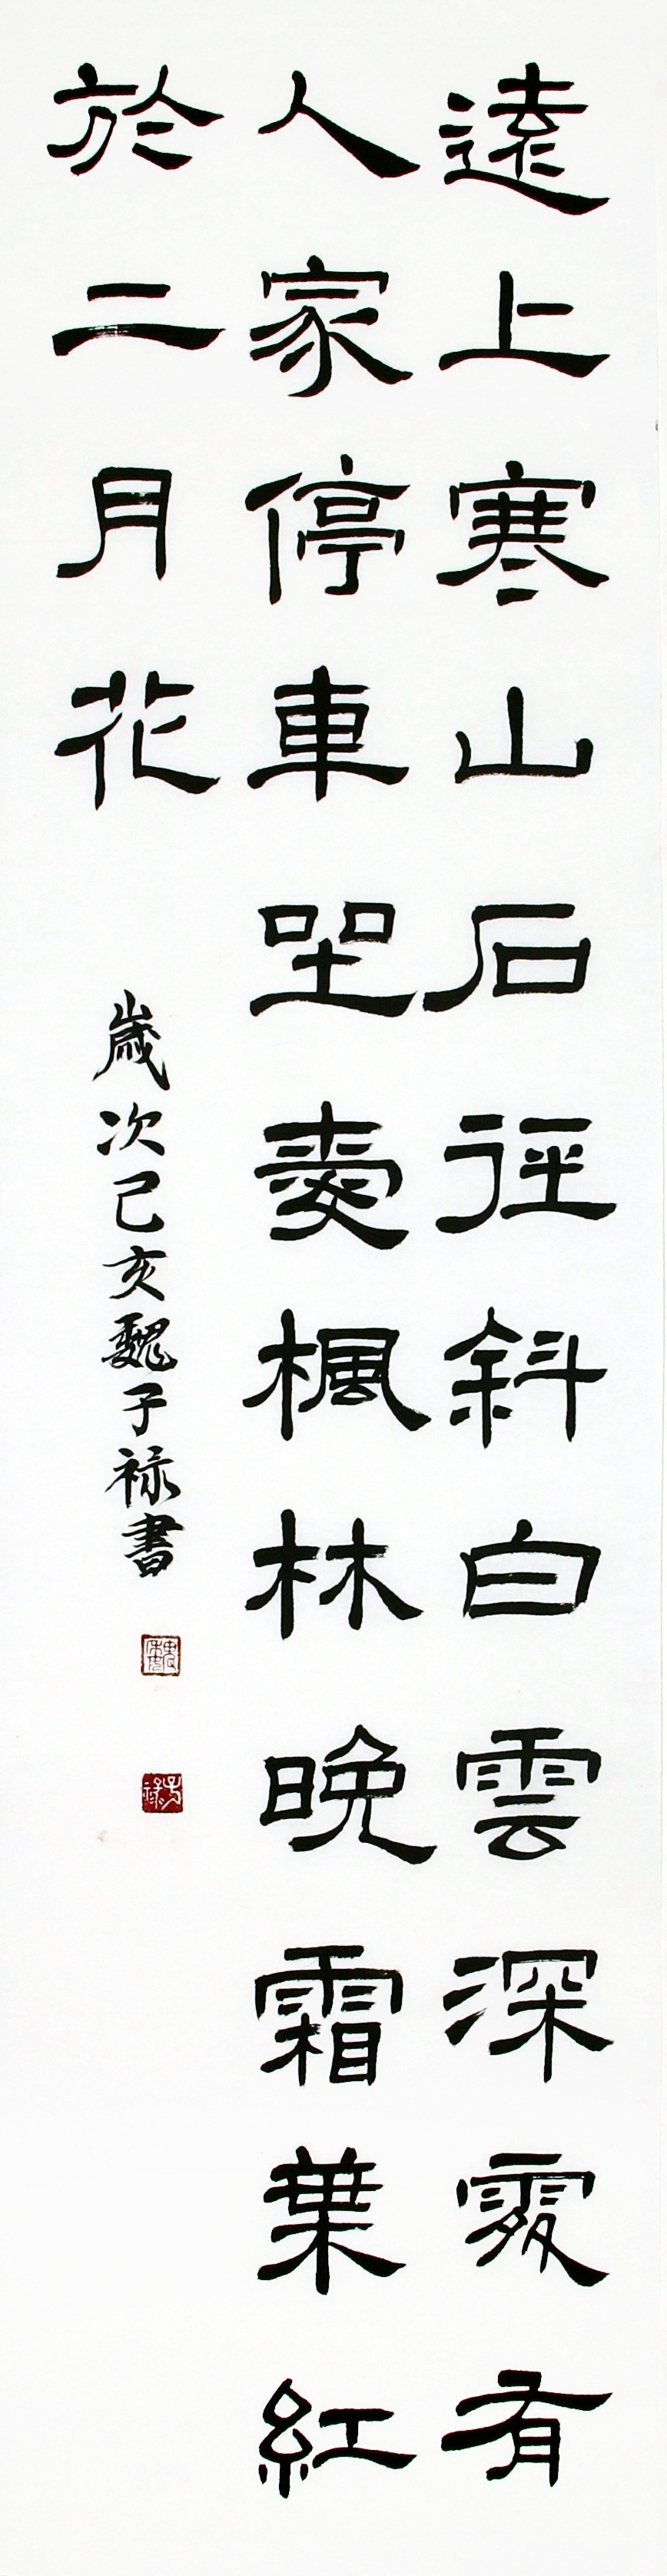 遠上寒山石徑斜白雲深處有
人家停車坐愛楓林晚霜葉紅
於二月花
歲次己亥魏子祿書